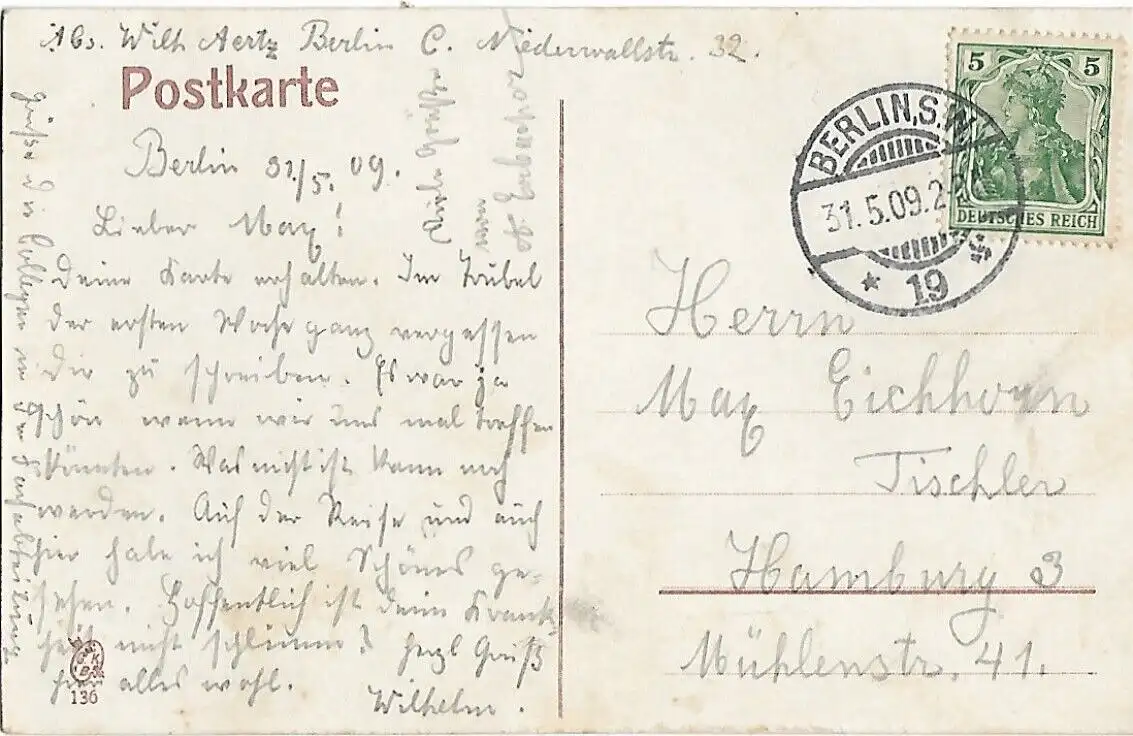 Abs. Wilh Aertz Berlin C. Niederwallstr. 32.
Postkarte
Berlin 31/5. 09.
Lieber Max!
Deine Karte erhalten. Im Trubel
der ersten Woche ganz vergessen
Dir zu schreiben. Es war ja
schön wenn wir uns mal treffen
könnten. Was nicht ist kann noch
werden. Auf der Reise und auch
hier habe ich viel Schönes ge-
sehen. Hoffentlich ist dein Krank-
heit nicht schlimm? herzl Gruß
hier alles wohl.
Wilhelm.
grüße die Collegen in der Fachabteilung
Viele Grüße
von
BERLIN, S.W.
31.5.09.2
* 19
5 5
DEUTSCHES REICH
Herrn
Max Eichhorn
Tischler
Hamburg 3
Mühlenstr. 41.
136